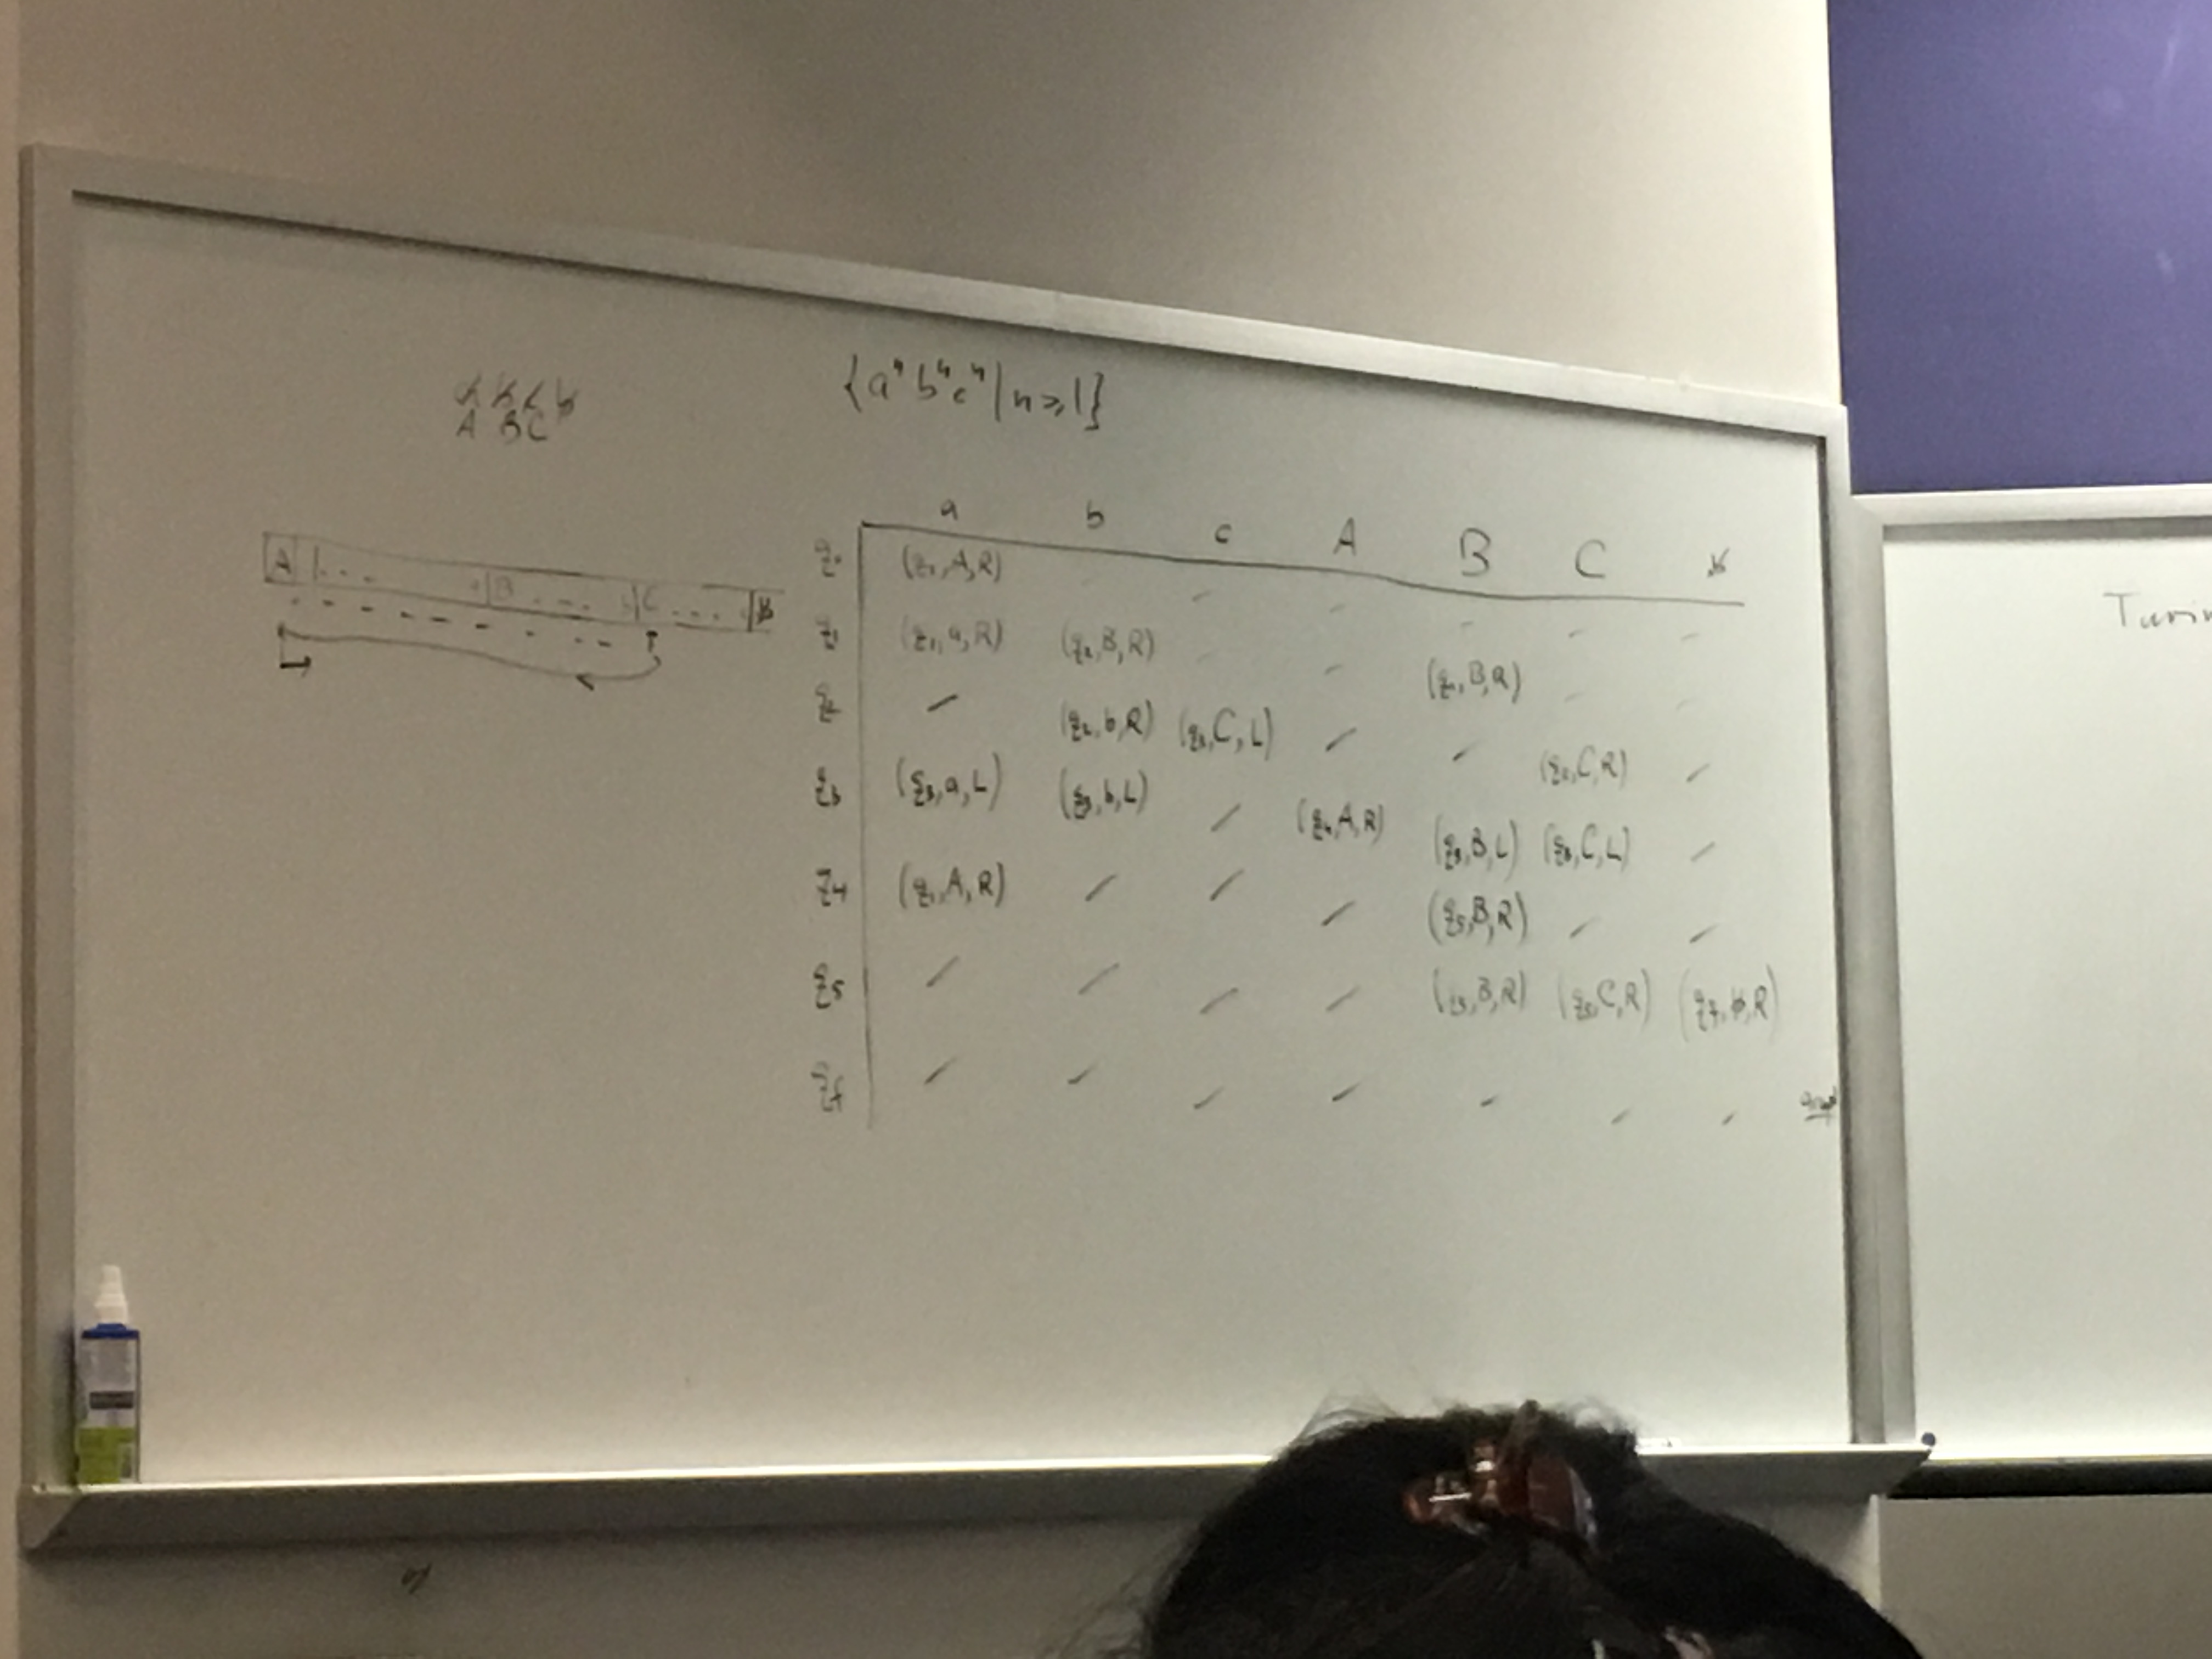 {aⁿbⁿcⁿ | n ≥ 1}
a b c b̸
A B C
A | . . . B . . . b | C . . . | b̸
a b c A B C b̸
q₀ (q₁, A, R) - - - - -
q₁ (q₁, a, R) (q₂, B, R) - - (q₁, B, R) - -
q₂ - (q₂, b, R) (q₃, C, L) - - (q₂, C, R) -
q₃ (q₃, a, L) (q₃, b, L) - (q₄, A, R) (q₃, B, L) (q₃, C, L) -
q₄ (q₁, A, R) - - - (q₅, B, R) - -
q₅ - - - - (q₅, B, R) (q₅, C, R) (q_f, b̸, R)
q_f - - - - - - - accept